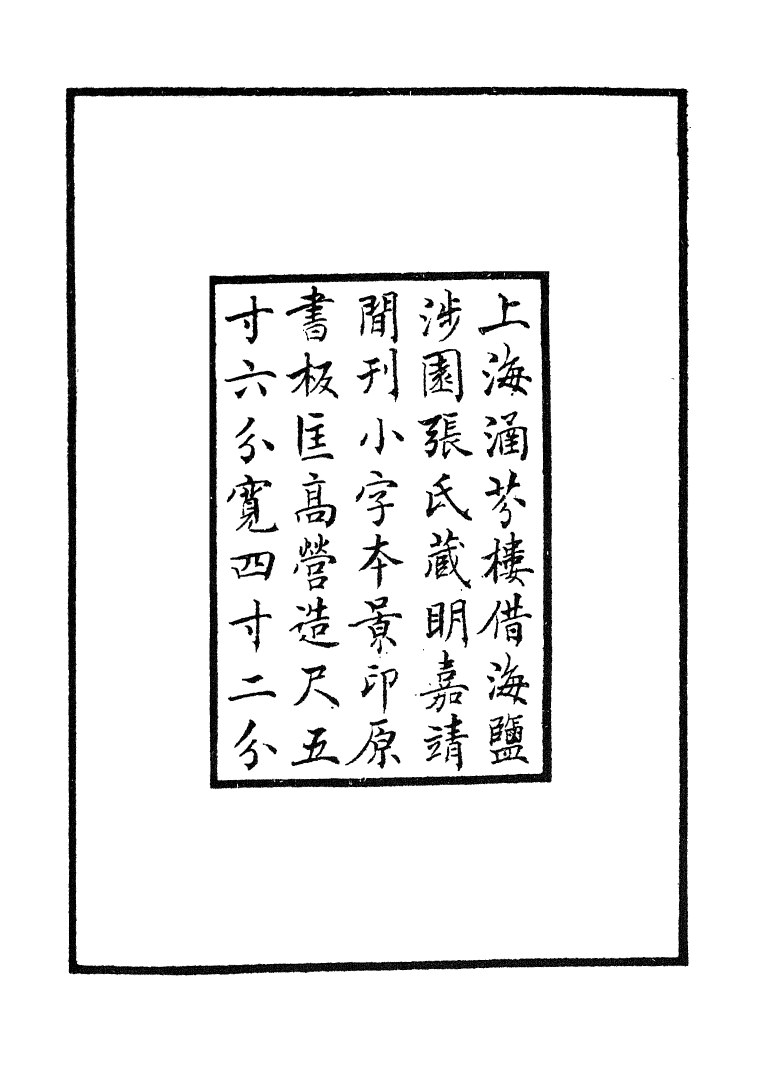 上海涵芬樓借海鹽
涉園張氏藏明嘉靖
間刊小字本景印原
書板匡高營造尺五
寸六分寬四寸二分